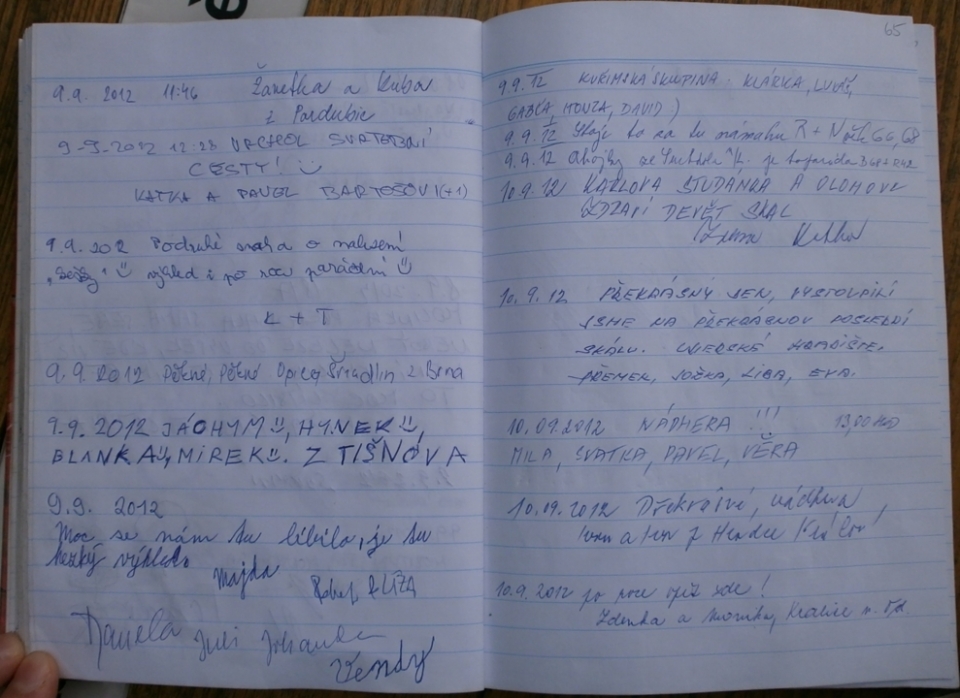 9.9. 2012 11:46 Žanetka a Kuba
z Pardubic
9-9-2012 12:23 VRCHOL SVATEBNÍ
CESTY!
KATKA A PAVEL BARTOŠOVI (+1)
9.9.2012 Podruhé snaha o nalezení
výhled i po roce parádní
K + T
9.9.2012 Pěkné, Pěkné Brna
9.9.2012 JÁCHYM, HYNEK,
BLANKA, MIREK. Z TIŠNOVA
9.9. 2012
Moc se nám tu líbilo, je tu
hezký výhled.
Majda Robert LÍZA
Daniela Juli Johanka
Vendy
65
9.9.12 KUŘIMSKÁ SKUPINA: KLÁRKA, LUCIE,
GABČA, HONZA, DAVID)
9.9.12 Stoje to za tu námahu R + N
9.9.12 Ahojky
10.9.12 KARLOVA STUDÁNKA A OLOMOUC
ZDRAVÍ DEVĚT SKAL
10.9.12 PŘEKRÁSNÝ DEN, VYSTOUPILI
JSME NA PŘEKRÁSNOU POSLEDNÍ
SKÁLU. UHERSKÉ HRADIŠTĚ.
PŘEMEK, JOŽKA, LIBA, EVA.
10.09.2012 NÁDHERA !!! 13,00 HOD
MILA, SVATKA, PAVEL, VĚRA
10.09.2012 Překrásné, nádhera
Ivan a z Hradce Král
10.9.2012 po roce opět zde!
Zdenka a Kralice n. Osl